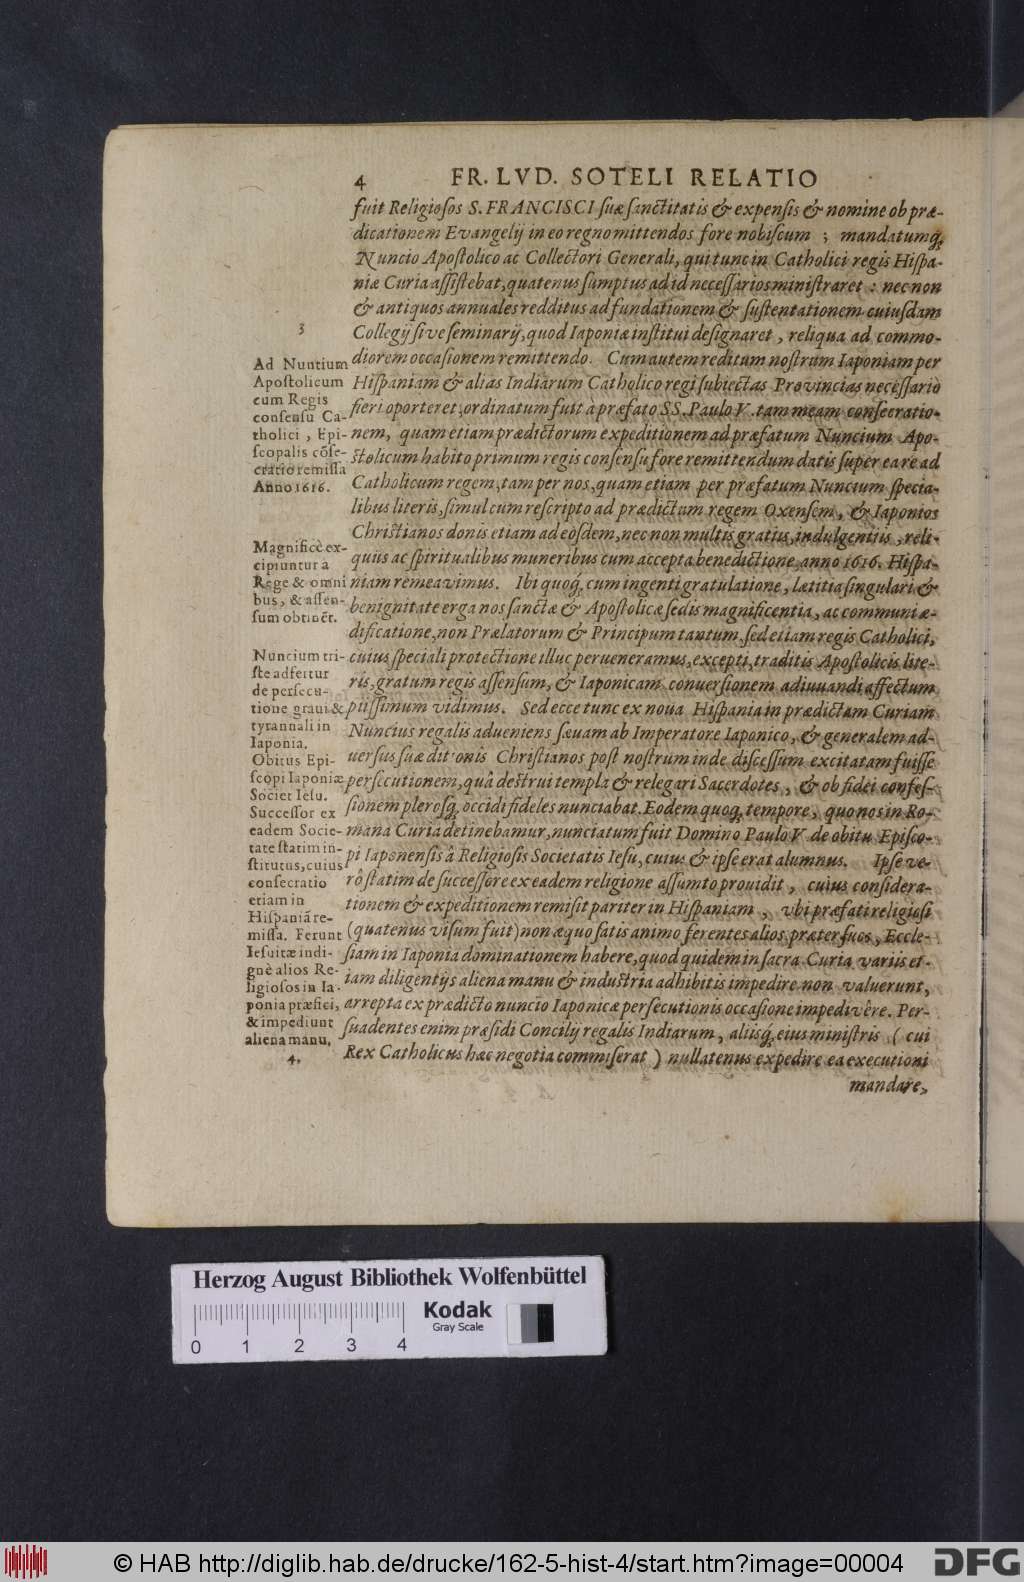 4 FR. LVD. SOTELI RELATIO
fuit Religiosos S. FRANCISCI suæ sanctitatis & expensis & nomine ob præ-
dicationem Evangelij in eo regno mittendos fore nobiscum ; mandatumq́;
Nuncio Apostolico ac Collectori Generali, qui tunc in Catholici regis Hispa-
niæ Curia assistebat, quatenus sumptus ad id necessarios ministraret : nec non
& antiquos annuales redditus ad fundationem & sustentationem cuiusdam
Collegij sive seminarij, quod Iaponiæ institui designaret , reliqua ad commo-
diorem occasionem remittendo. Cum autem reditum nostrum Iaponiam per
Hispaniam & alias Indiarum Catholico regi subiectas Provincias necessario
fieri oporteret, ordinatum fuit à præfato SS. Paulo V. tam meam consecratio-
nem, quam etiam prædictorum expeditionem ad præfatum Nuncium Apo-
stolicum habito primum regis consensu fore remittendum datis super ea re ad
Catholicum regem, tam per nos, quam etiam per præfatum Nuncium specia-
libus literis, simul cum rescripto ad prædictum regem Oxensem, & Iaponios
Christianos donis etiam ad eosdem, nec non multis gratiis, indulgentiis , reli-
quiis ac spiritualibus muneribus cum accepta benedictione anno 1616. Hispa-
niam remeavimus. Ibi quoq́; cum ingenti gratulatione, lætitia singulari &
benignitate erga nos sanctæ & Apostolicæ sedis magnificentia, ac communi æ-
dificatione, non Prælatorum & Principum tantum, sed etiam regis Catholici,
cuius speciali protectione illuc perueneramus, excepti, traditis Apostolicis lite-
ris, gratum regis assensum, & Iaponicam conuersionem adiuuandi affectum
piissimum vidimus. Sed ecce tunc ex noua Hispania in prædictam Curiam
Nuncius regalis adueniens sæuam ab Imperatore Iaponico, & generalem ad-
uersus suæ ditionis Christianos post nostrum inde discessum excitatam fuisse
persecutionem, quâ destrui templa & relegari Sacerdotes , & ob fidei confes-
sionem plerosq́; occidi fideles nunciabat. Eodem quoq́; tempore, quo nos in Ro-
mana Curia detinebamur, nunciatum fuit Domino Paulo V. de obitu Episco-
pi Iaponensis à Religiosis Societatis Iesu, cuius & ipse erat alumnus. Ipse ve-
rò statim de successore ex eadem religione assumto prouidit , cuius considera-
tionem & expeditionem remisit pariter in Hispaniam , vbi præfati religiosi
(quatenus visum fuit) non æquo satis animo ferentes alios, præter suos , Eccle-
siam in Iaponia dominationem habere, quod quidem in sacra Curia variis et-
iam diligentijs aliena manu & industria adhibitis impedire non valuerunt,
arrepta ex prædicto nuncio Iaponicæ persecutionis occasione impedivêre. Per-
suadentes enim præsidi Concilij regalis Indiarum, aliisq́; eius ministris ( cui
Rex Catholicus hæc negotia commiserat ) nullatenus expedire ea executioni
mandare,
3
Ad Nuntium
Apostolicum
cum Regis
consensu Ca-
tholici , Epi-
scopalis cōse-
cratio remissa
Anno 1616.
Magnificè ex-
cipiuntur a
Rege & omni
bus, & assen-
sum obtinēt.
Nuncium tri-
ste adfertur
de persecu-
tione graui &
tyrannali in
Iaponia.
Obitus Epi-
scopi Iaponiæ
Societ Iesu.
Successor ex
eadem Socie-
tate statim in-
stitutus, cuius
consecratio
etiam in
Hispaniā re-
missa. Ferunt
Iesuitæ indi-
gnè alios Re-
ligiosos in Ia-
ponia præfici,
& impediunt
aliena manu.
4.
Herzog August Bibliothek Wolfenbüttel
Kodak
Gray Scale
0 1 2 3 4
© HAB http://diglib.hab.de/drucke/162-5-hist-4/start.htm?image=00004
DFG